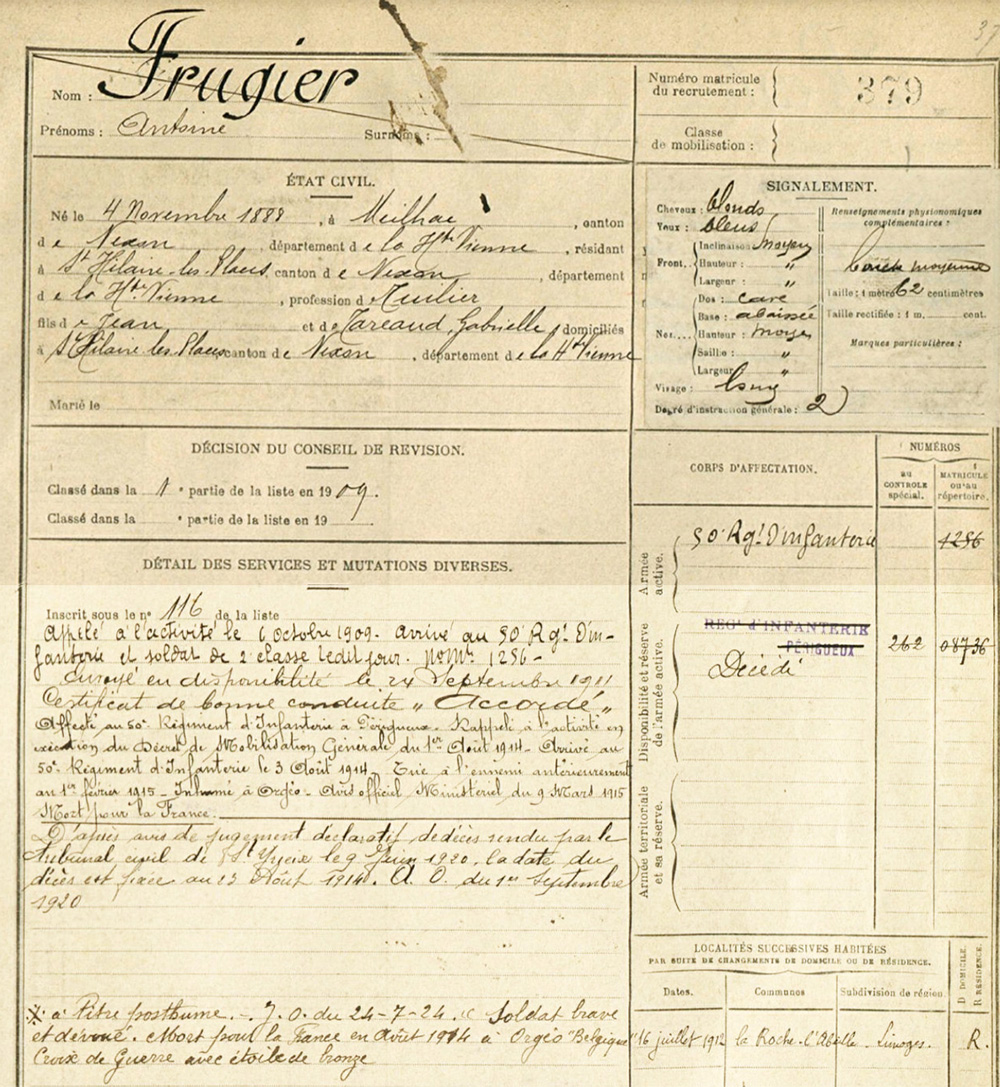 37
Nom : Frugier
Prénoms : Antoine Surnoms :
Numéro matricule du recrutement : 379
Classe de mobilisation :
ÉTAT CIVIL.
Né le 4 Novembre 1888, à Meilhac, canton
de Nexon, département de la Hte Vienne, résidant
à St Hilaire-les-Places canton de Nexon, département
de la Hte Vienne, profession de Tuilier
fils de Jean et de Tareaud, Gabrielle, domiciliés
à St Hilaire les Places canton de Nexon, département de la Hte Vienne
Marié le
SIGNALEMENT.
Cheveux : blonds
Yeux : bleus
Front. Inclinaison moyen
Hauteur : "
Largeur : "
Nez. Dos : cave
Base : abaissée
Hauteur : moyen
Saillie : "
Largeur "
Visage : long
Degré d'instruction générale : 2
Renseignements physionomiques complémentaires :
bouche moyenne
Taille : 1 mètre 62 centimètres
Taille rectifiée : 1 m. cent.
Marques particulières :
DÉCISION DU CONSEIL DE REVISION.
Classé dans la 1e partie de la liste en 1909.
Classé dans la e partie de la liste en 19
DÉTAIL DES SERVICES ET MUTATIONS DIVERSES.
Inscrit sous le n° 116 de la liste
Appelé à l'activité le 6 octobre 1909. Arrivé au 50e Rgt D'in-
fanterie et soldat de 2e classe ledit jour. No Mle 1256 -
Envoyé en disponibilité le 24 Septembre 1911
Certificat de bonne conduite "Accordé"
Affecté au 50e Régiment d'Infanterie à Périgueux - Rappelé à l'activité en
exécution du Décret de Mobilisation Générale du 1er Août 1914 - Arrivé au
50e Régiment d'Infanterie le 3 Août 1914 - Tué à l'ennemi antérieurement
au 1er février 1915 - Inhumé à Orgéo - Avis officiel Ministériel du 9 Mars 1915
Mort pour la France.
D'après avis de jugement déclaratif de décès rendu par le
Tribunal civil de St Yrieix le 9 Juin 1920, la date du
décès est fixée au 23 Août 1914. A. O. du 1er Septembre
1920
à titre posthume. - J. O. du 24-7-24. "Soldat brave
et dévoué. Mort pour la France en Août 1914 à Orgéo "Belgique"
Croix de Guerre avec étoile de bronze
CORPS D'AFFECTATION.
NUMÉROS
au CONTROLE spécial.
MATRICULE ou au répertoire.
Armée active.
50e Rgt D'infanterie 1256
Disponibilité et réserve de l'armée active.
REGt d'INFANTERIE
PÉRIGUEUX 262 08736
Décédé
Armée territoriale et sa réserve.
LOCALITÉS SUCCESSIVES HABITÉES
PAR SUITE DE CHANGEMENTS DE DOMICILE OU DE RÉSIDENCE.
Dates. Communes Subdivision de région. D DOMICILE. R RÉSIDENCE.
16 juillet 1912 la Roche-l'Abeille - Limoges. R.